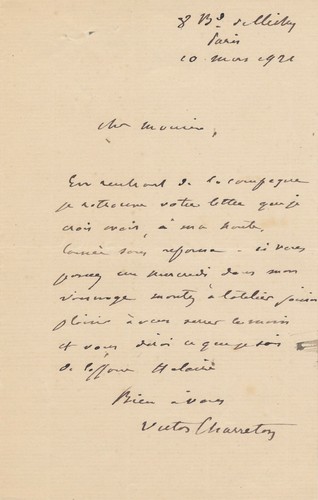 8 Bd de Clichy
Paris
10 mars 1921
Cher Monsieur,
En rentrant de la campagne
je retrouve votre lettre que je
crois avoir, à ma honte,
laissée sans reponse. si vous
passez un mercredi dans mon
voisinage montez à l'atelier j'aurai
plaisir à vous serrer la main
et vous dirai ce que je sais
de l'affaire
Bien à vous
Victor Charreton